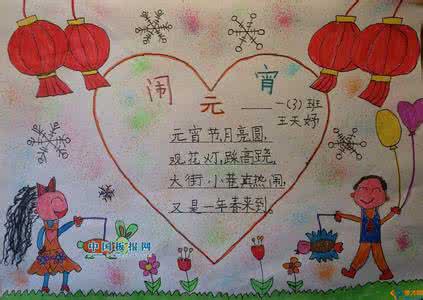 闹元宵
——一(3)班
王天妤
元宵节,月亮圆,
观花灯,踩高跷,
大街小巷真热闹,
又是一年春来到。
中国板报网